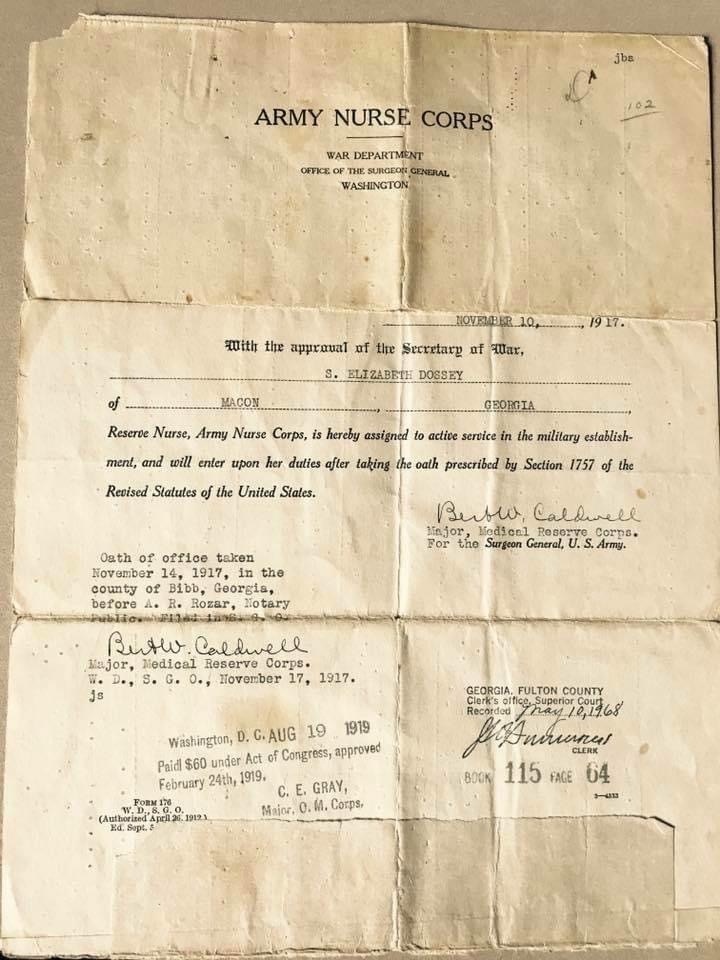 jbs
102
ARMY NURSE CORPS
WAR DEPARTMENT
OFFICE OF THE SURGEON GENERAL
WASHINGTON
NOVEMBER 10, 1917.
With the approval of the Secretary of War,
S. ELIZABETH DOSSEY
of MACON, GEORGIA,
Reserve Nurse, Army Nurse Corps, is hereby assigned to active service in the military establish-
ment, and will enter upon her duties after taking the oath prescribed by Section 1757 of the
Revised Statutes of the United States.
Bert W. Caldwell
Major, Medical Reserve Corps.
For the Surgeon General, U. S. Army.
Oath of office taken
November 14, 1917, in the
county of Bibb, Georgia,
before A. R. Rozar, Notary
Public. Filed in S. G. O.
Bert W. Caldwell
Major, Medical Reserve Corps.
W. D., S. G. O., November 17, 1917.
js
Washington, D. C. AUG 19 1919
Paid $60 under Act of Congress, approved
February 24th, 1919.
C. E. GRAY,
Major, Q. M. Corps.
FORM 176
W. D., S. G. O.
(Authorized April 26, 1912.)
Ed. Sept. 5
GEORGIA, FULTON COUNTY
Clerk's office, Superior Court
Recorded May 10, 1968
CLERK
BOOK 115 PAGE 64